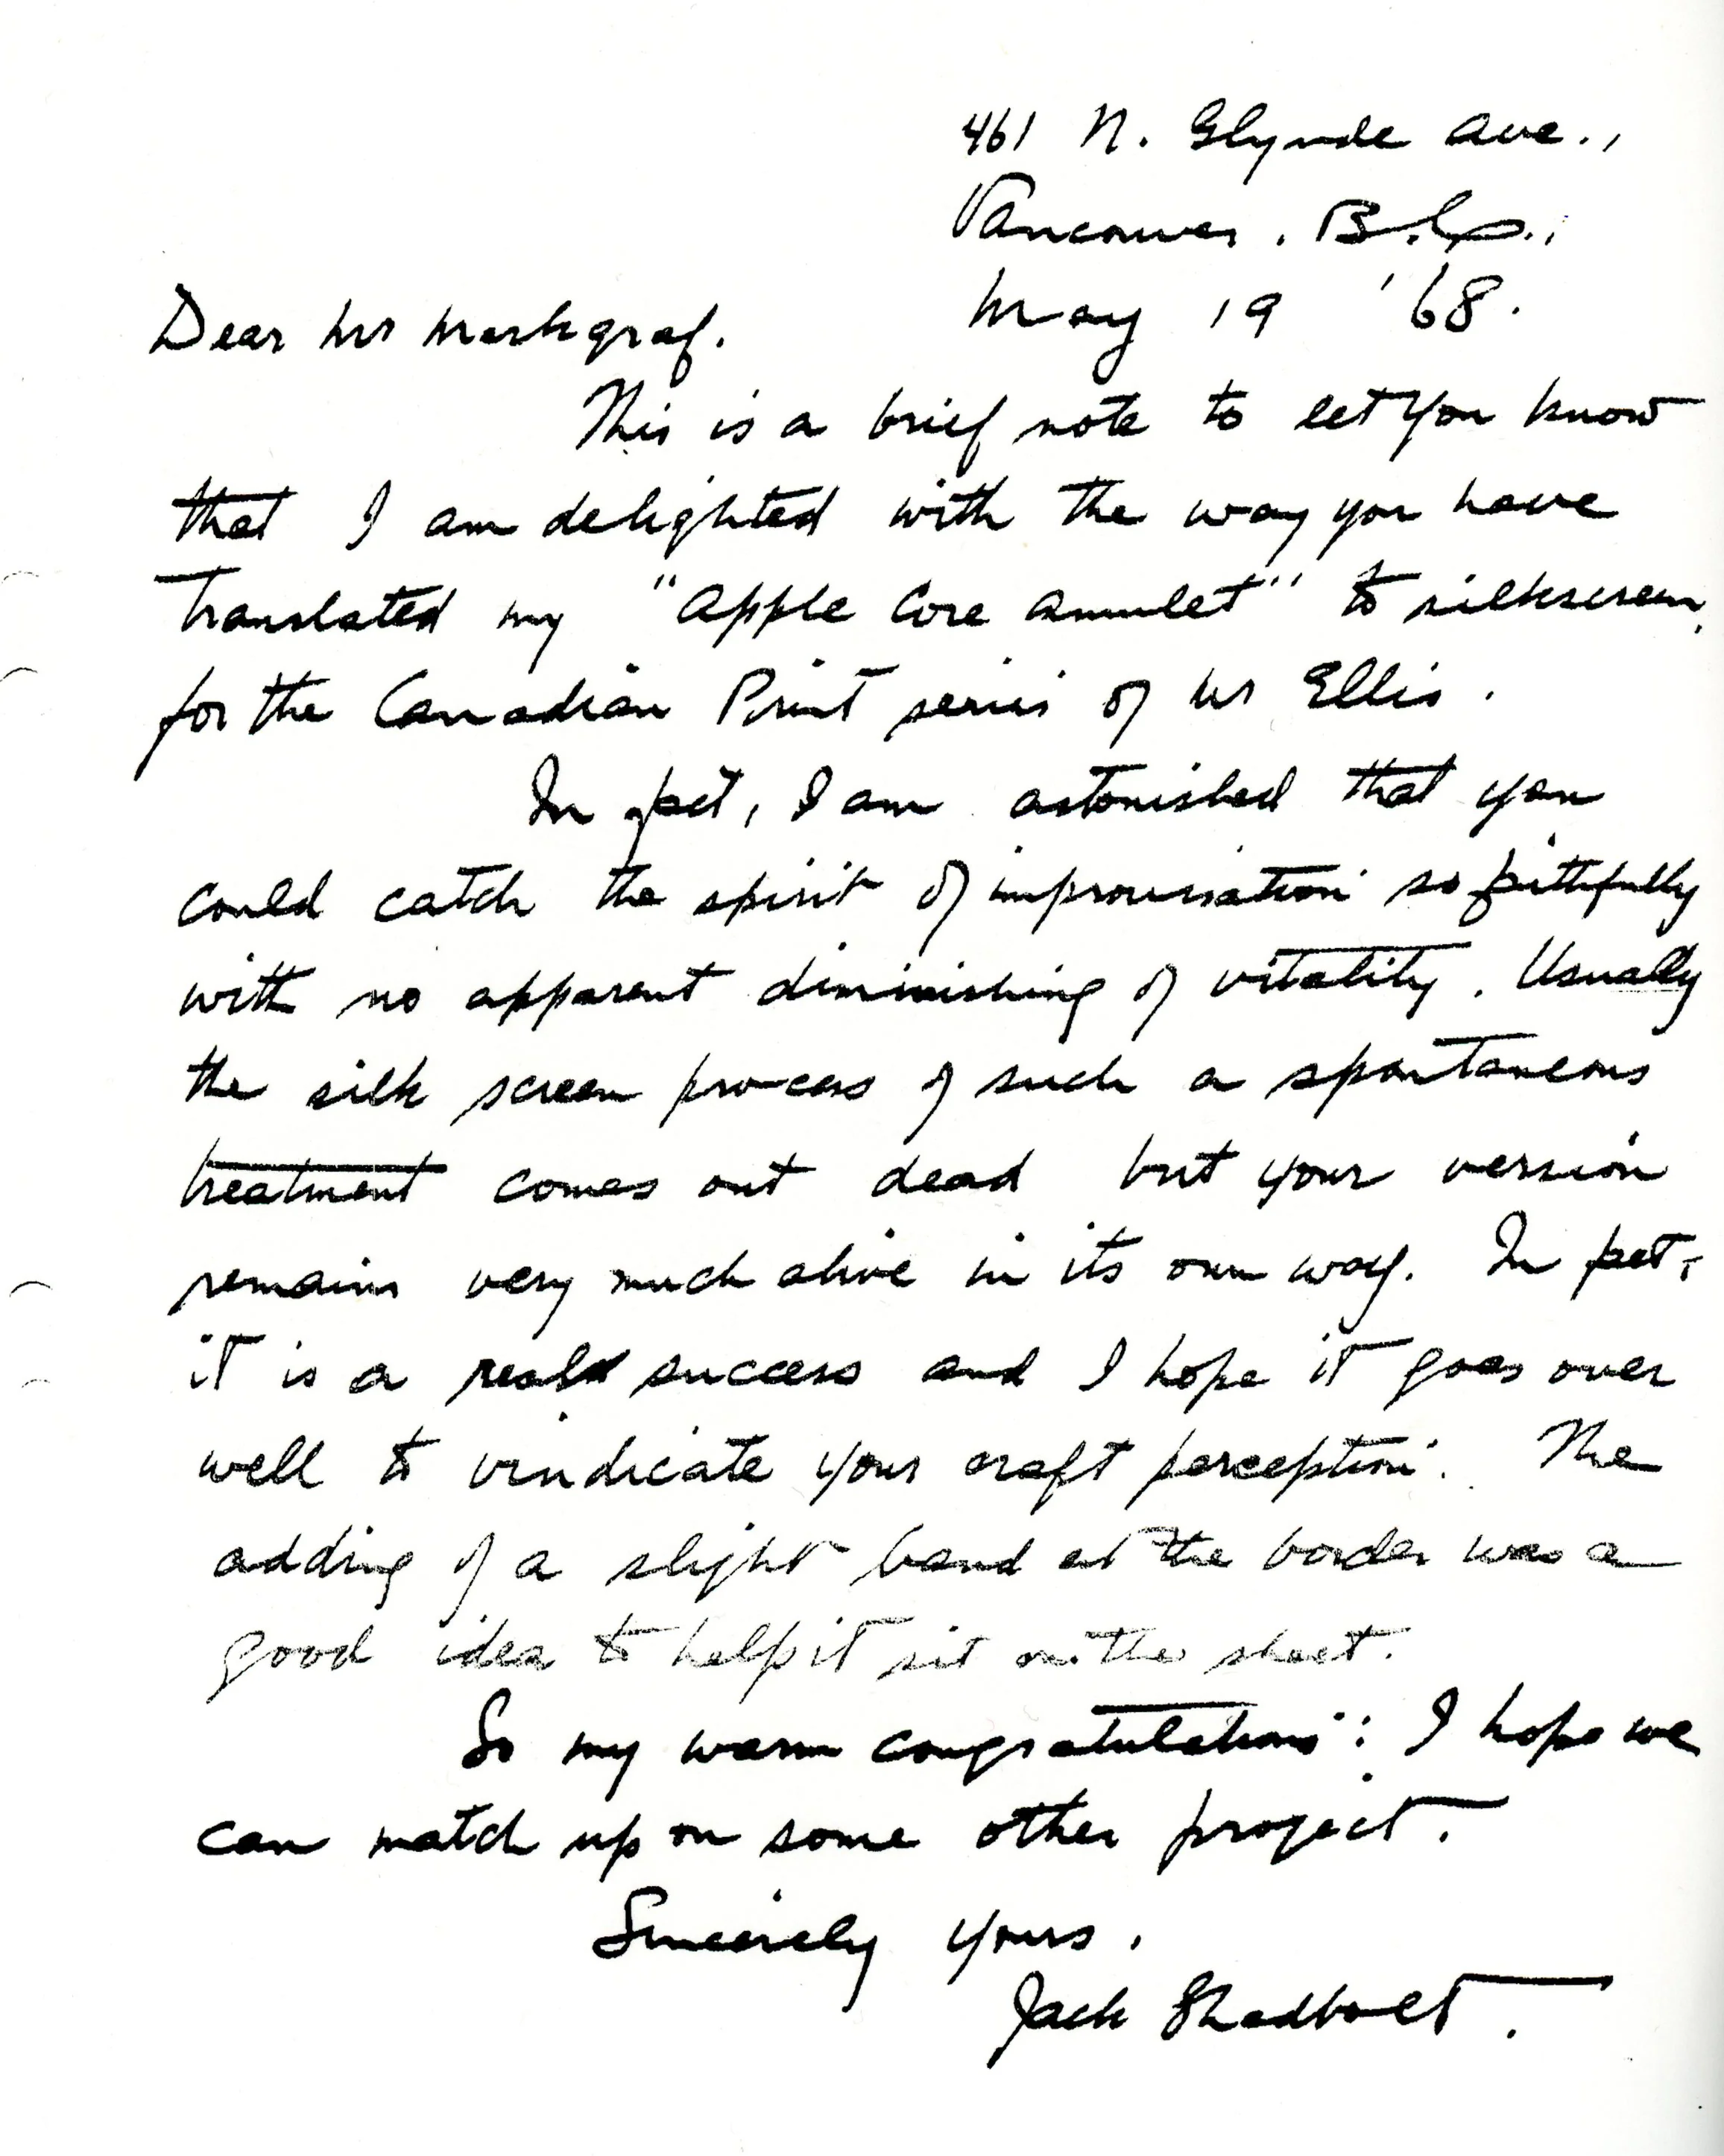 461 N. Glynde Ave.,
Vancouver. B.C.,
May 19 '68.
Dear Mr Markgraf.
This is a brief note to let you know
that I am delighted with the way you have
translated my "Apple Core Amulet" to silkscreen,
for the Canadian Print series of Mr Ellis.
In fact, I am astonished that you
could catch the spirit of improvisation so faithfully
with no apparent diminishing of vitality. Usually
the silk screen process of such a spontaneous
treatment comes out dead but your version
remains very much alive in its own way. In fact,
it is a real success and I hope it goes over
well to vindicate your craft perception. The
adding of a slight band at the border was a
good idea to help it sit on the sheet.
So my warm congratulations: I hope we
can match up on some other project.
Sincerely yours,
Jack Shadbolt.